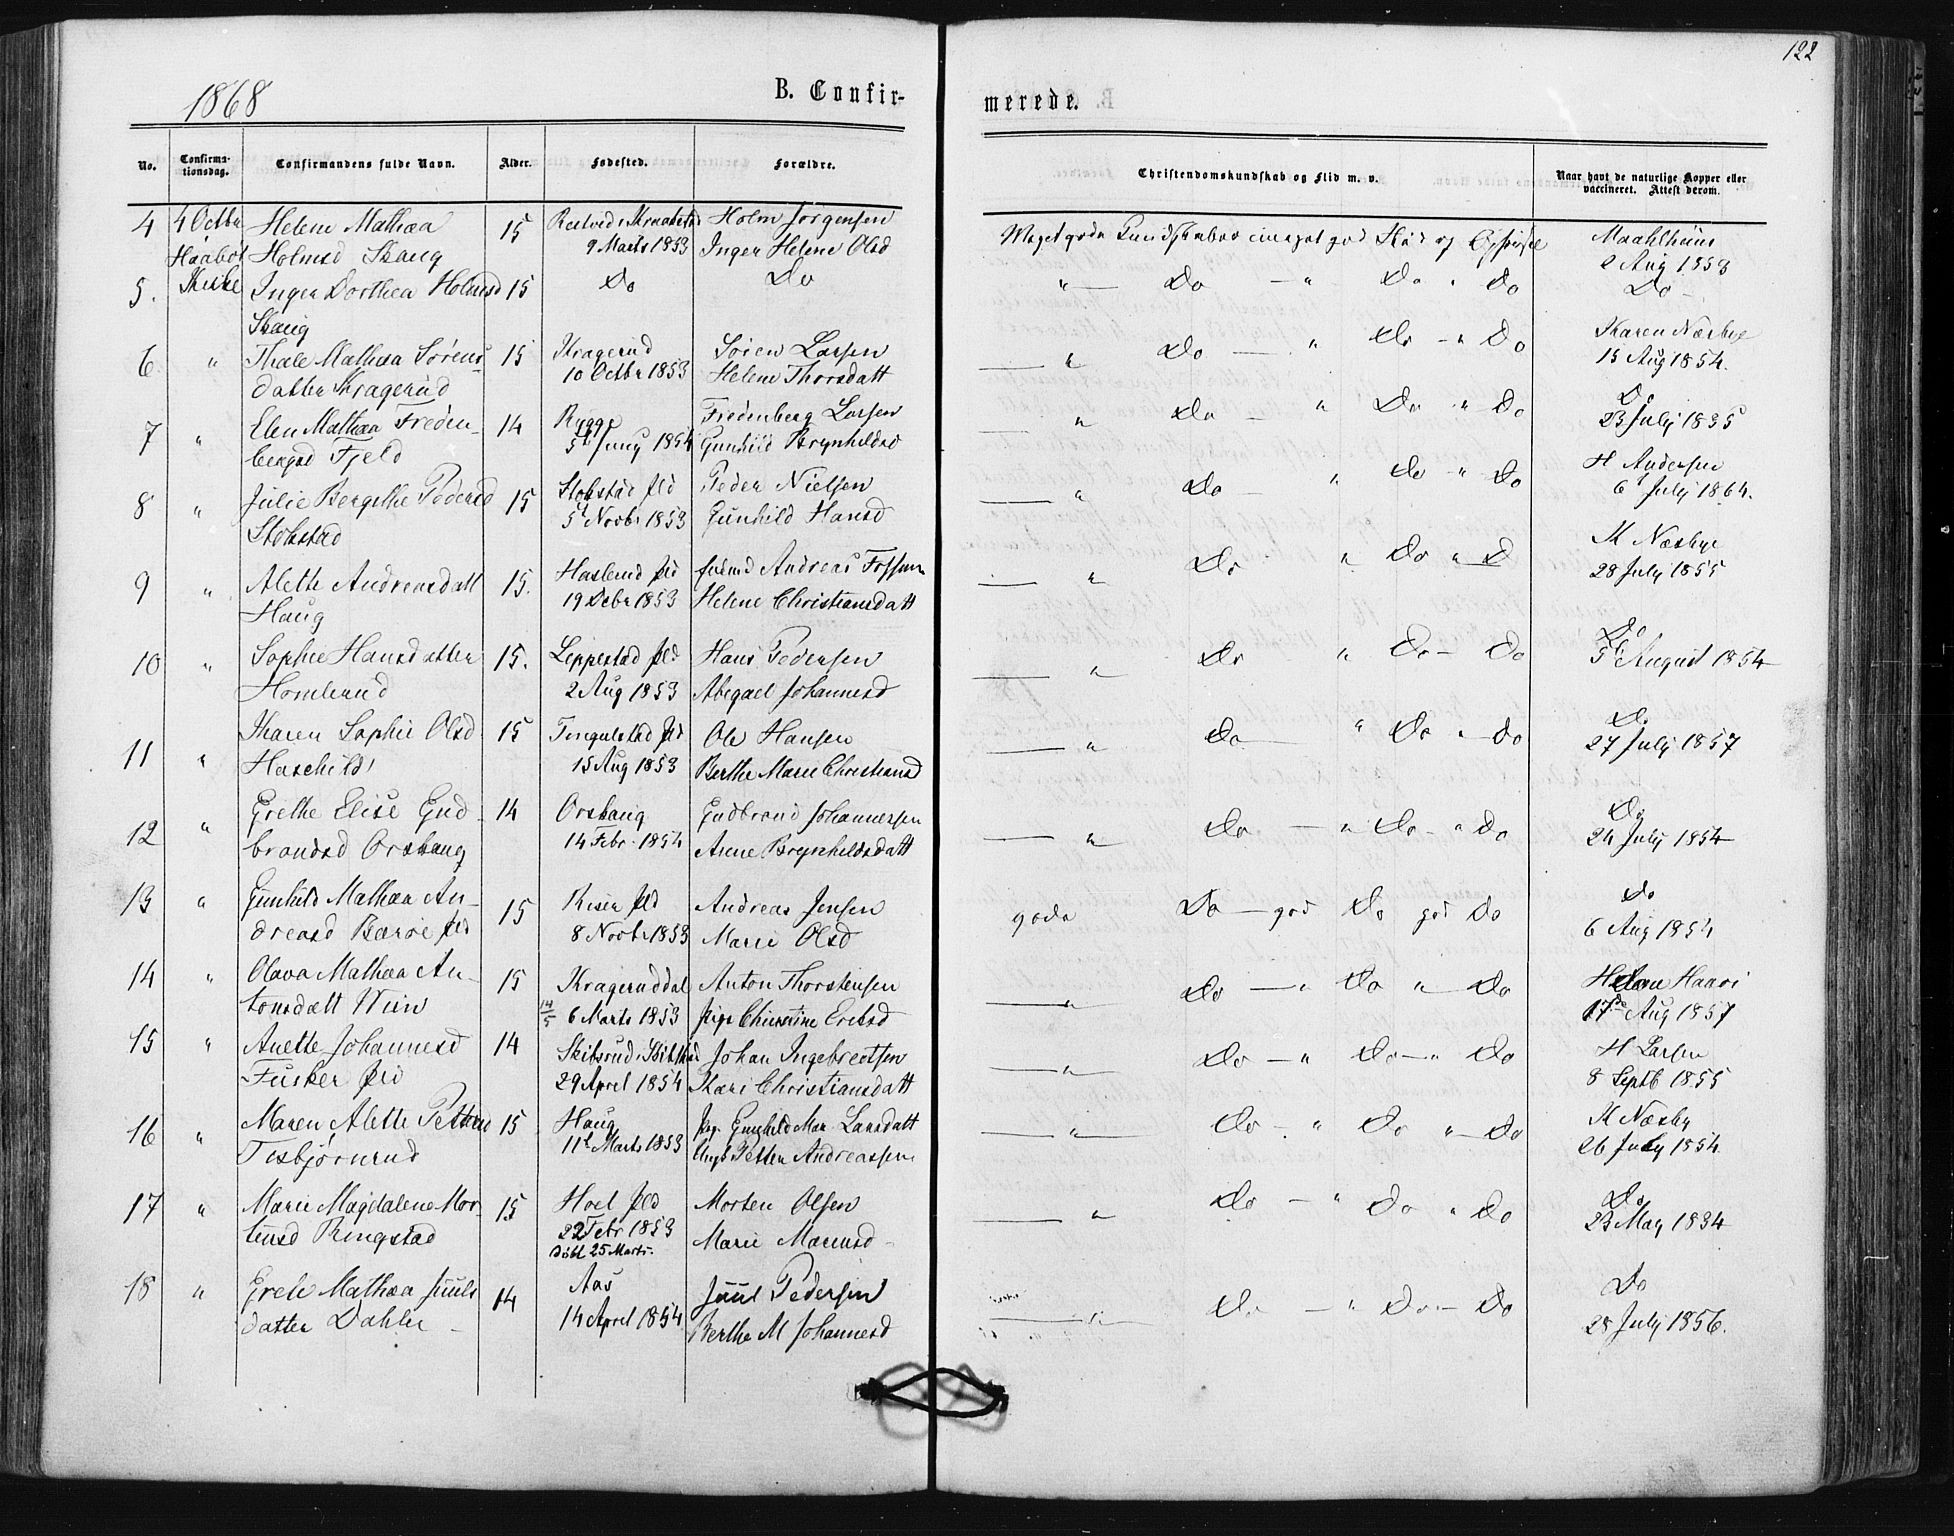 122
1868
B. Confir-
merede.
No.
Confirma-
tionsdag.
Confirmandens fulde Navn.
Alder.
Fødested.
Forældre.
Christendomskundskab og Flid m. v.
Naar havt de naturlige Kopper eller
vaccineret. Attest derom.
4 4 Octbr Helene Mathea 15 Holm Jørgensen Meget gode Kundskaber meget god Flid og
Haabøl Holmsd Skaug 9 Marts 1853 Inger Helene Olsd 2 Aug 1853
5. Kirke Inger Dorthea Holmsd 15 Do Do " Do " Do " Do Do
Skaug
6 " Thale Mathea Sørens- 15 Kragerud Søren Larsen " Do " Do " Do Karen Næsbye
datter Kragerud 10 Octbr 1853 Helene Thorsdatt 15 Aug 1854.
7 " Elen Mathea Freden- 14 Rygge Fredenberg Larsen " Do " Do " Do Do
bergsd Fjeld 5t Juny 1854 Gunhild Brynhildsd 23 July 1855
8 " Julie Bergithe Pedersd 15 Stokstad Peder Nielsen " Do " Do " Do H Andersen
Stokstad 5t Novbr 1853 Gunhild Hansd 6t July 1864.
9 " Alette Andreasdatt 15. Haslerud Andreas " Do " Do " D K Næsbye
Haug 19 Debr 1853 Helene Christiansdatt 28 July 1855
10 " Sophie Hansdatter 15. Leppestad Hans Pedersen " Do " Do Do Do
2 Aug 1853 Abigael Johannesd 5t August 1854
11 " Karen Sophie Olsd 15 Tingulstad Ole Hansen " Do " Do " Do Do
Haschild 15 Aug 1853 Berthe Marie Christiansd 27 July 1857
12 " Grethe Elise Gud- 14 Orskaug Gudbrand Johannessen " Do " Do " Do Do
brandsd Orskaug 14 Febr 1854 Anne Brynhildsdatt 24 July 1854
13 " Gunhild Mathea An- 15 Risen Andreas Jensen gode Do god Do god Do Do
dreasd 8 Novbr 1853 Marie Olsd 6 Aug 1854
14 " Olava Mathea An- 15 Krageruddal Anton Thorstensen " Do " Do " Do Haari
tonsdatt 6 Marts 1853 Christine 17de Aug 1857
15 " Anette Johannesd 14 Skibsrud Johan Ingebretsen " Do " Do " Do H Larsen
Fusker 29 April 1854 Kari Christiansdatt 8 Septb 1855
16 " Maren Alette Pettersd 15 Haug Gunhild Mar. Larsdatt " Do " Do " Do K Næsby
Tisbjørnrud 11t Marts 1853 Petter Andreassen 26 July 1854
17 " Marie Magdalene Mor- 15 Hoel Morten Olsen " Do " Do " Do Do
tensd Ringstad 22 Febr 1853 Marie 23 May 1834
Døbt 25 Marts.
18 " Grete Mathea Juuls 14 Aas Juul Pedersen " Do " Do Do Do
datter Dahler 14 April 1854 Berthe M Johannesd 28 July 1856.